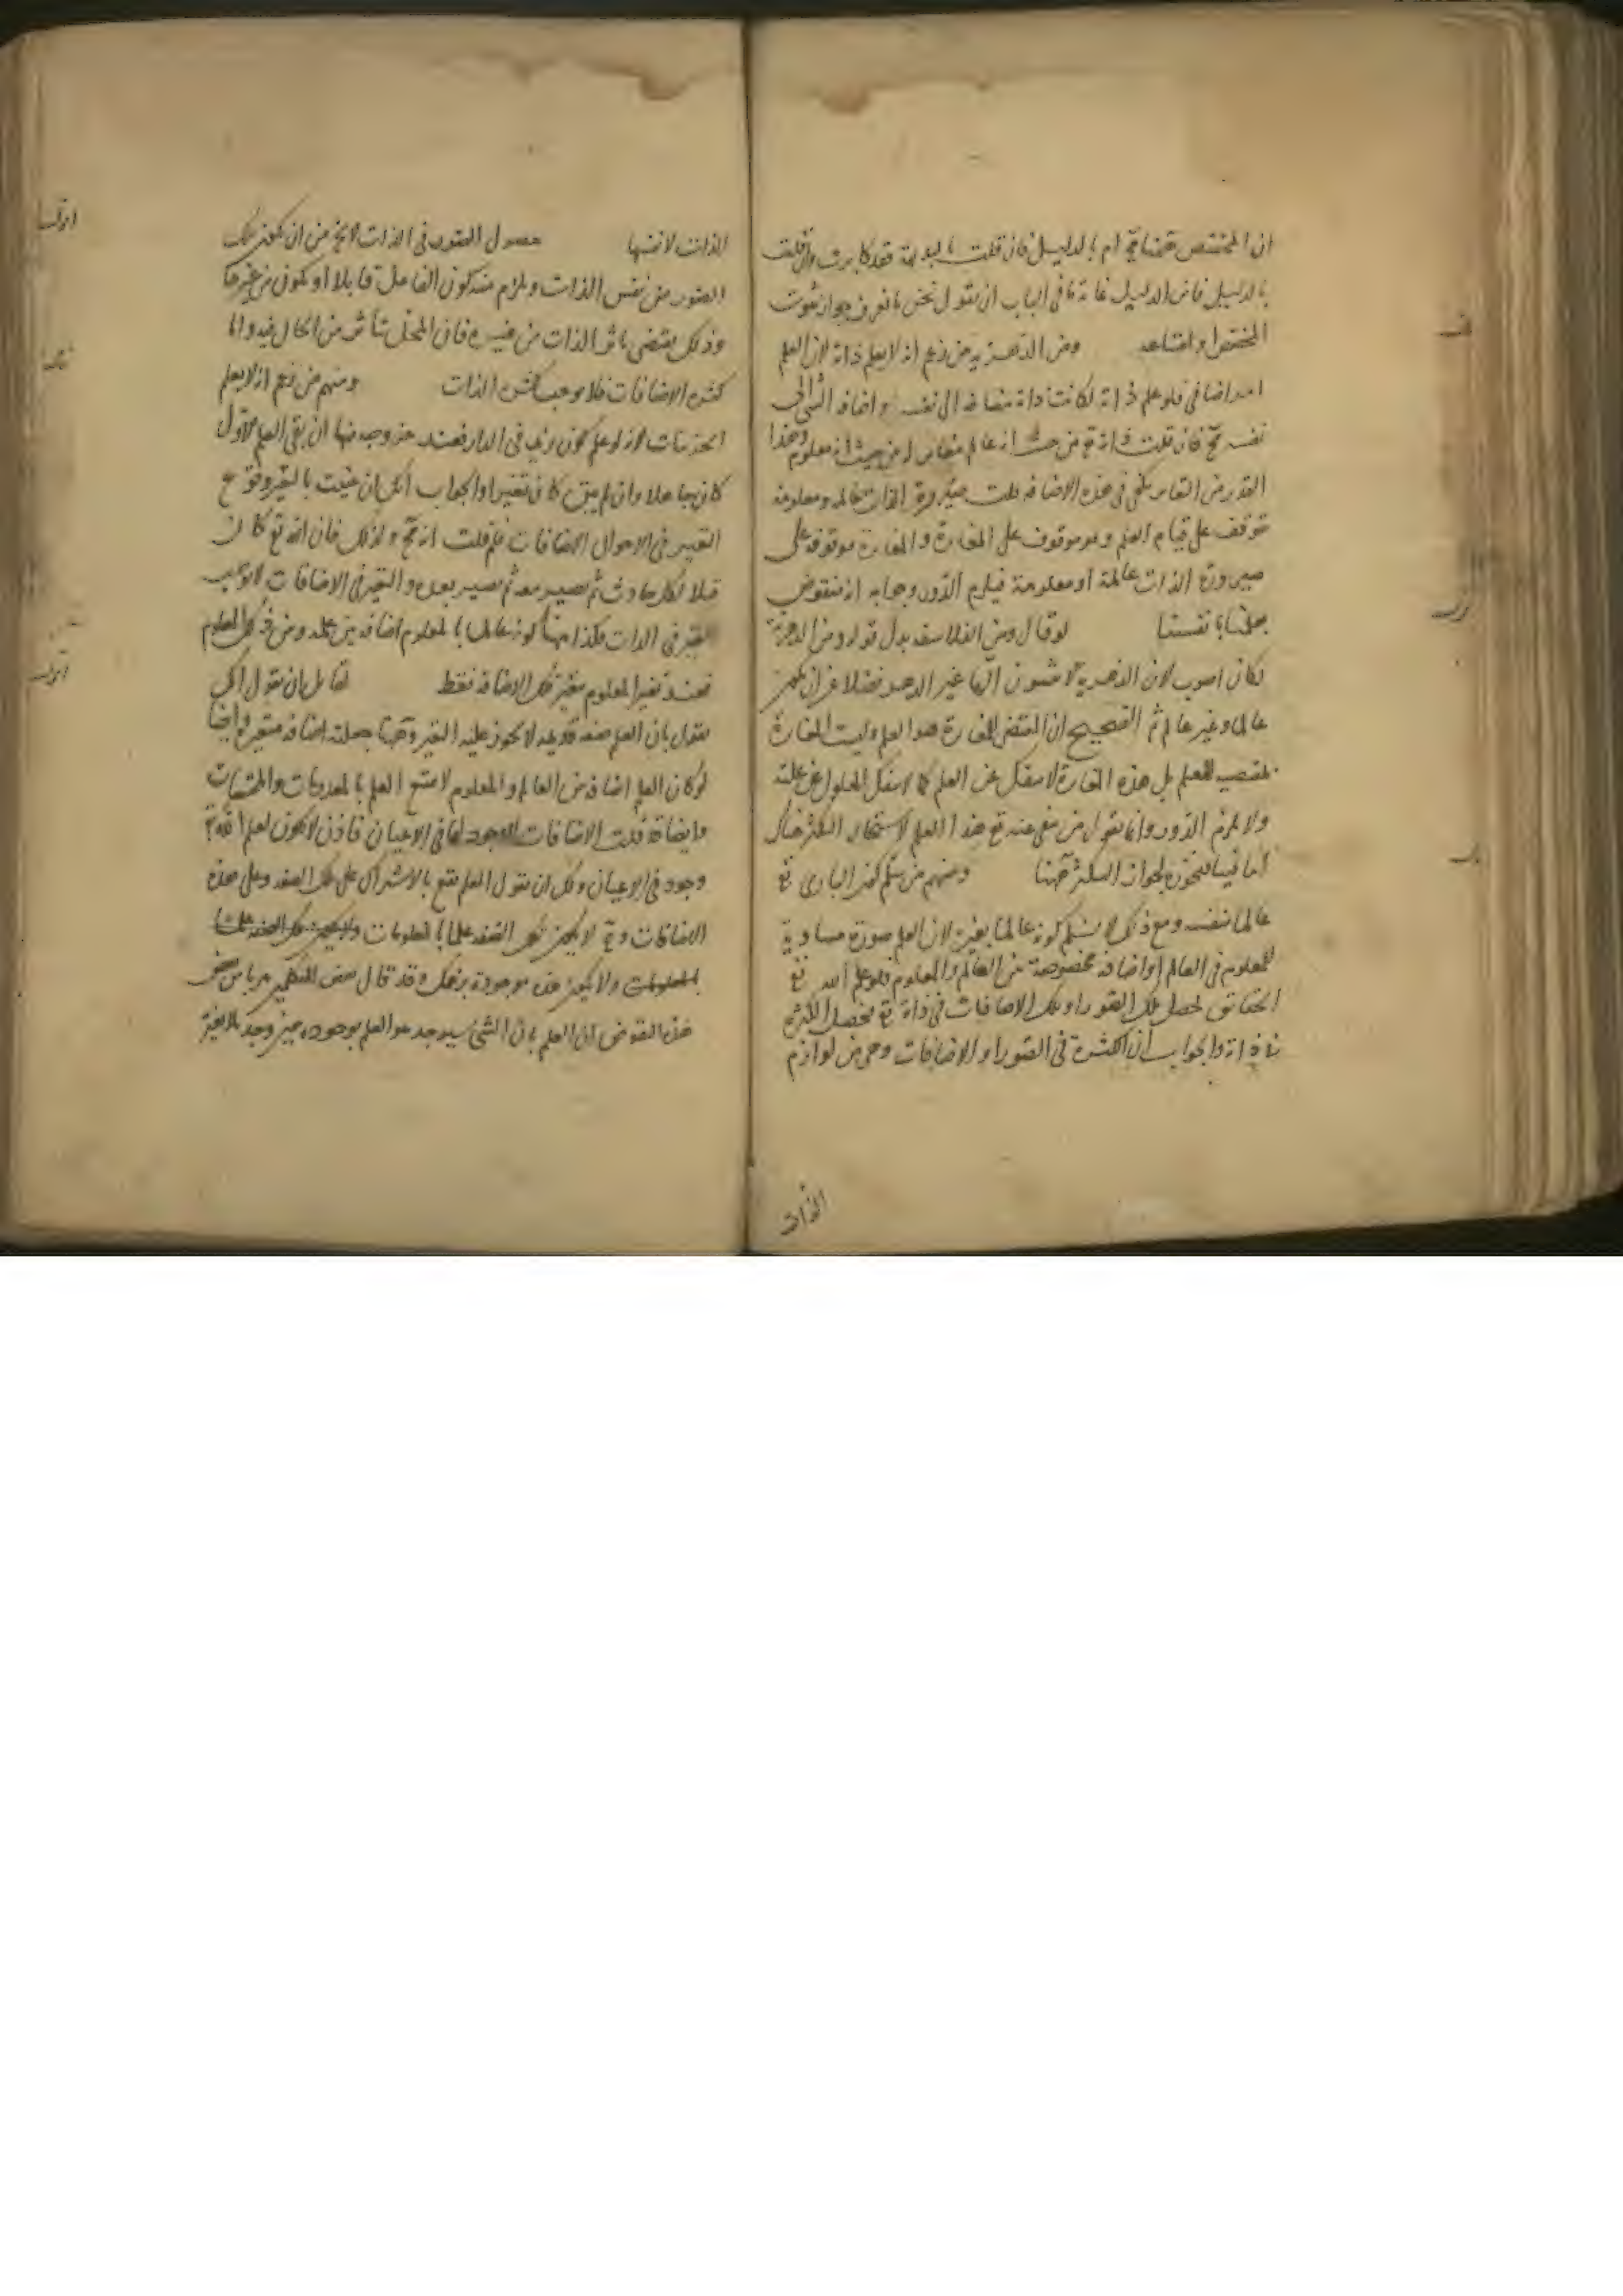 ان المختص ههنا مح ام بالدليل فان قلت بالبديهة فقد كابرت وان قلت
بالدليل فاين الدليل غاية ما فى الباب ان يقول نحن ما نعرف جواز ثبوت
المختص وامتناعه ومن الدهرية من زعم انه لا يعلم ذاته لان العلم
امر اضافى فلو علم ذاته لكانت ذاته مضافه الى نفسه واضافه الشئ الى
نفسه مح فان قلت ذاته تع من حيث انه عالم مغاير له من حيث انه معلوم وهذا
القدر من التغاير يكفى فى هذه الاضافه قلت صيرورة الذات عالمه ومعلومه
تتوقف على قيام العلم وهو موقوف على المغايرة والمغايرة موقوفه على
صيرورة الذات عالمة او معلومة فيلزم الدور وجوابه انه منقوض
بعلمنا بانفسنا لو قال ومن الفلاسفه بدل قوله ومن الدهرية
لكان اصوب لان الدهرية لا يثبتون الها غير الدهر فضلا عن ان يكون
عالما وغير عالم ثم الصحيح ان المقتضى للمغايرة هو العلم وليست المغايرة
مقتضيه للعلم بل هذه المغايرة لا ينفك عن العلم كما لا ينفك المعلول عن علته
ولا يلزم الدور وانما يقول من ينفى عنه تع هذا العلم لاستحالة التكثر هناك
اما فينا فنجوزه لجواز التكثر ههنا ومنهم من سلم كون البارى تع
عالما بنفسه ومع ذلك لا يسلم كونه عالما بغيره لان العلم صورة مساوية
للمعلوم فى العالم او اضافه مخصوصة بين العالم والمعلوم فلو علم الله تع
الحقائق لحصل تلك الصور او تلك الاضافات فى ذاته تع فيحصل الكثرة
فى ذاته والجواب ان الكثرة فى الصور او الاضافات وهى من لوازم
الذات
الذات لا نفسها حصول الصور فى الذات لا يخ من ان يكون تلك
الصور من نفس الذات ويلزم منه كون الفاعل قابلا او يكون من غيرها
وذلك يقتضى تاثر الذات من غيره فان المحل يتأثر من الحال فيه واما
كثرة الاضافات فلا يوجب كثرة الذات ومنهم من زعم انه لا يعلم
الجزئيات لانه لو علم كون زيد فى الدار فعند خروجه منها ان بقى العلم الاول
كان جاهلا وان لم يبق كان تغيرا والجواب انك ان عنيت بالتغير وقوع
التغير فى الاحوال الاضافات فلم قلت انه مح وذلك فان الله تع كان
قبلا لكل حادث ثم يصير معه ثم يصير بعده والتغير فى الاضافات لا يوجب
التغير فى الذات فكذا ههنا كونه عالما بالمعلوم اضافه بين علمه وبين ذلك المعلوم
فعند تغير المعلوم يتغير تلك الاضافه فقط لقائل ان يقول انك
تقول بان العلم صفه قديمه لا يجوز عليه التغير وههنا جعلته اضافه متغيرة وايضا
لو كان العلم اضافه بين العالم والمعلوم لامتنع العلم بالمعدومات والممتنعات
وايضا قد قلت الاضافات لا وجود لها فى الاعيان فاذن لا يكون لعلم الله تع
وجود فى الاعيان ولك ان تقول العلم يقع بالاشتراك على تلك الصفه وعلى هذه
الاضافات وح لا يكون تلك الصفه علما بالمعلومات ولا يكون تلك الصفه علما
بالمعلومات ولا يكون هذه موجودة بزعمك وقد قال بعض المتكلمين هربا من
هذه النقوض ان العلم بان الشئ سيوجد هو العلم بوجوده حين وجد بلا تغير
اقول
اقول